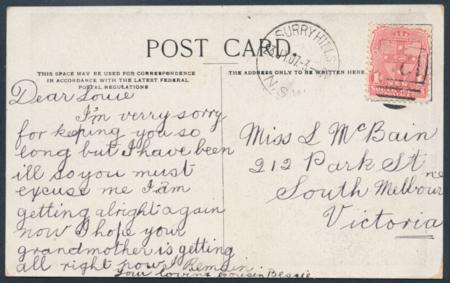 POST CARD.
THIS SPACE MAY BE USED FOR CORRESPONDENCE
IN ACCORDANCE WITH THE LATEST FEDERAL
POSTAL REGULATIONS
THE ADDRESS ONLY TO BE WRITTEN HERE.
SURRY HILLS
N.S.W
Dear Louie
I'm verry sorry
for keping you so
long but I have been
ill so you must
excuse me I am
getting alright again
now I hope your
grandmother is getting
all right now I Remain
Your loving Cousin Bessie
Miss L McBain
212 Park St
South Melbourne
Victoria